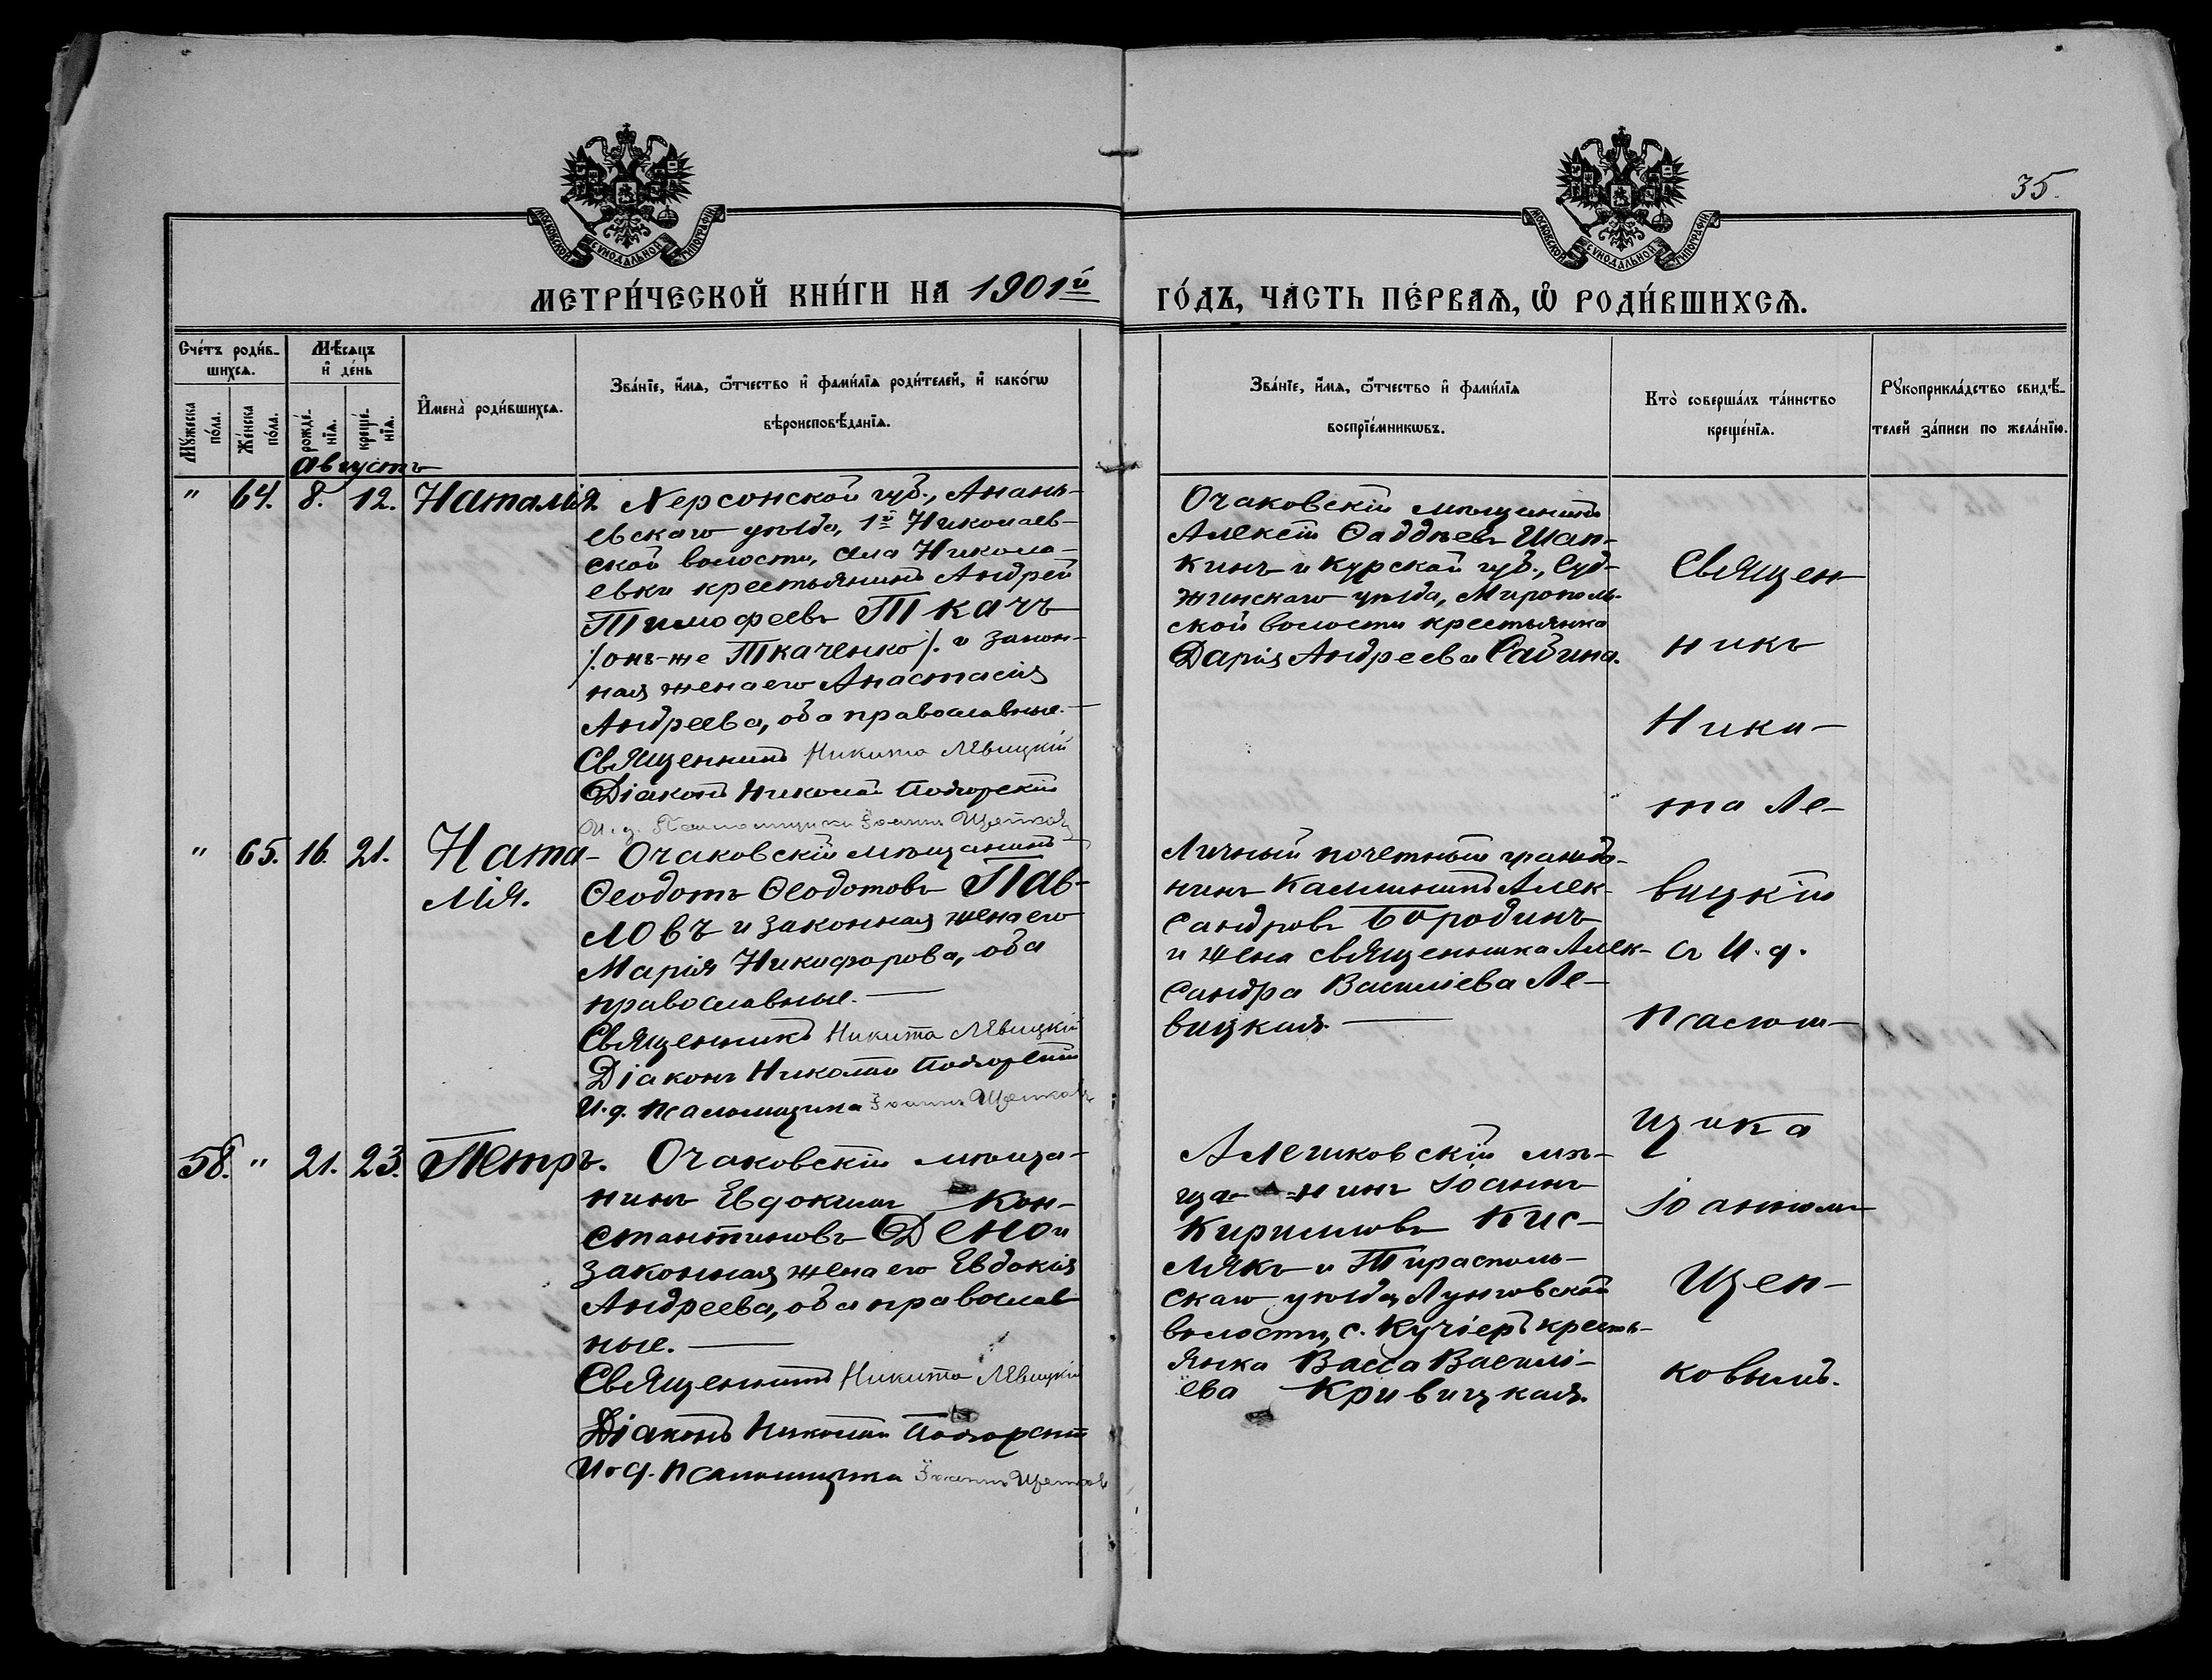 35.
МОСКОВСКОЙ СѴНОДАЛЬНОЙ ТИПОГРАФІИ
МОСКОВСКОЙ СѴНОДАЛЬНОЙ ТИПОГРАФІИ
МЕТРИ́ЧЕСКОЙ КНИ́ГИ НА 1901й ГО́ДЪ, ЧА́СТЬ ПЕ́РВАѦ, Ѽ РОДИ́ВШИХСѦ.
Сче́тъ роди́в-
шихсѧ.
Мꙋ́жеска по́ла.
Же́нска по́ла.
Мѣ́сѧцъ
и҆ де́нь
рожде́-
нїѧ.
креще́-
нїѧ.
И҆мена̀ роди́вшихсѧ.
Зва́нїе, и҆́мѧ, ѻ҆́тчество и҆ фами́лїѧ роди́телей, и҆ како́гѡ
вѣроисповѣ́данїѧ.
Зва́нїе, и҆́мѧ, ѻ҆́тчество и҆ фами́лїѧ
воспрїе́мникѡвъ.
Кто̀ соверша́лъ та́инство
креще́нїѧ.
Рꙋкоприкла́дство свидѣ́-
телей за́писи по жела́нїю.
Августъ
" 64. 8. 12. Наталія.
Херсонской губ., Анань-
евскаго уѣзда, 1й Николаев-
ской волости, села Никола-
евки крестьянинъ Андрей
Тимофеевъ Ткачъ
/. онъ-же Ткаченко /. и закон-
ная жена его Анастасія
Андреева, оба православные.—
Священникъ Никита Левицкій
Діаконъ Николай Подгорскій
И. д. Псаломщика Іоаннъ Щепковъ
Очаковскій мѣщанинъ
Алексій Ѳаддѣевъ Шап-
кинъ и Курской губ., Суд-
жинскаго уѣзда, Мирополь-
ской волости крестьянка
Дарія Андреева Сабина.
" 65. 16. 21. Ната-
лія.
Очаковскій мѣщанинъ
Ѳеодотъ Ѳеодотовъ Пав-
ловъ и законная жена его
Марія Никифорова, оба
православные. —
Священникъ Никита Левицкій
Діаконъ Николай Подгорскій
И. д. псаломщика Іоаннъ Щепковъ
Личный почетный гражда-
нинъ Каллиникъ Алек-
сандровъ Бородинъ
и жена священника Алек-
сандра Василіева Ле-
вицкая. —
58. " 21. 23. Петръ.
Очаковскій мѣща-
нинъ Евдокимъ Кон-
стантиновъ Дено и
законная жена его Евдокія
Андреева, оба православ
ные. —
Священникъ Никита Левицкій
Діаконъ Николай Подгорскій
И. д. псаломщика Іоаннъ Щепковъ
Алешковскій мѣ-
ща-нинъ Іоаннъ
Кирилловъ Кис-
лякъ и Тирасполь-
скаго уѣзда, Лунговской
волости, с. Кучіеръ кресть-
янка Васса Василі-
ева Кривицкая.
Священ-
никъ
Ники-
та Ле-
вицкій
съ И. д.
псалом-
щика
Іоанномъ
Щеп-
ковымъ.